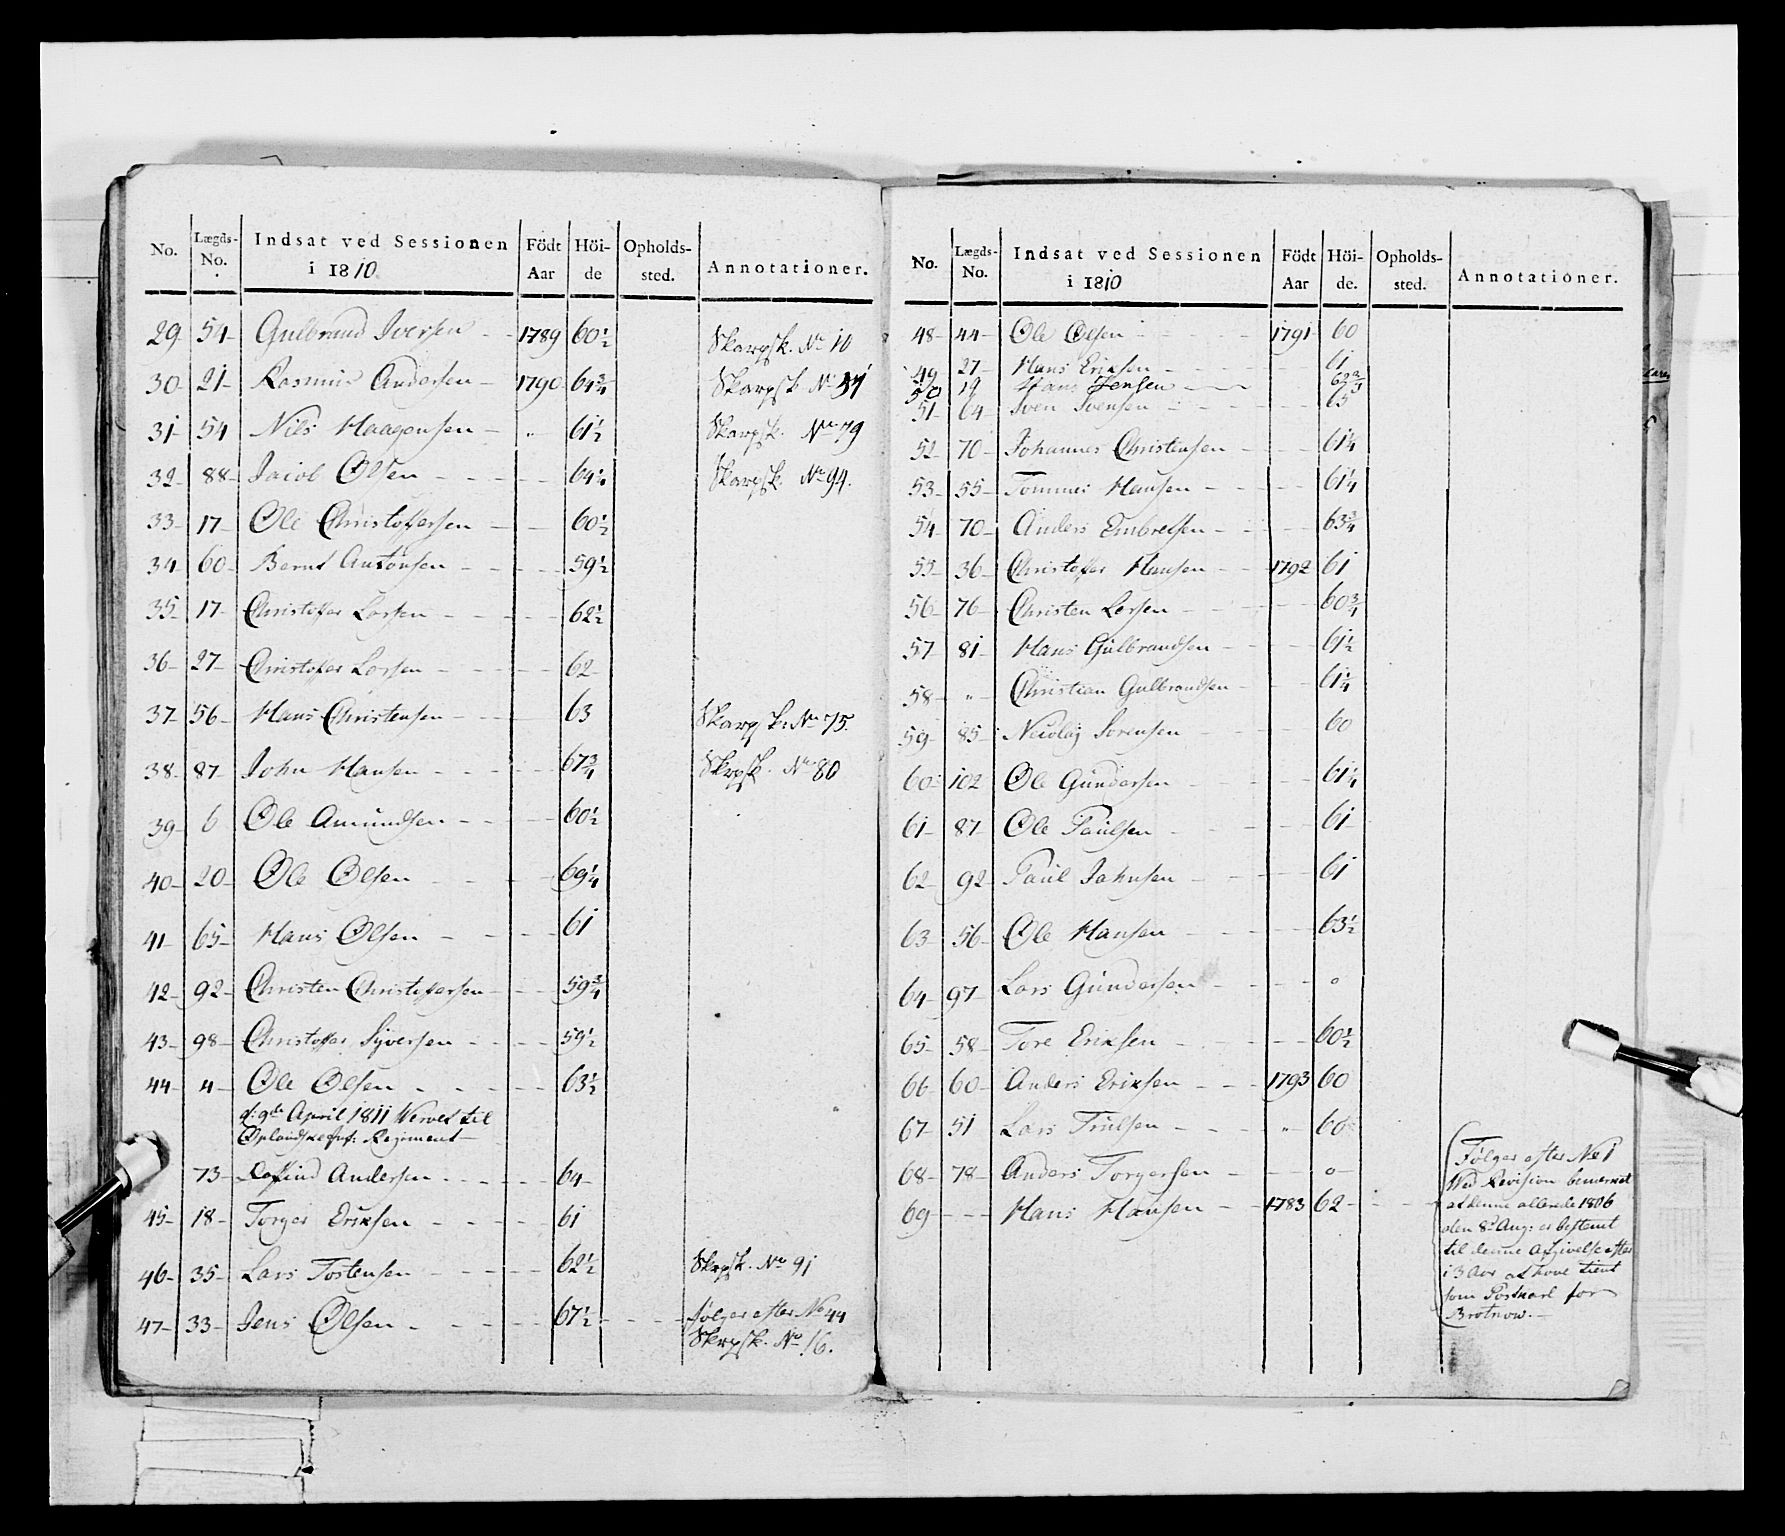 No. Lægds-No. Indsat ved Sessionen i 1810 Födt Aar Höi-de Opholds-sted. Annotationer.
29 54 Gulbrand Iversen 1789 60½ Skarpsk. No 10
30 21 Rasmus Andersen 1790 64¾ Skarpsk No 37
31 54 Nils Haagensen „ 61½ Skarpsk. No 79
32 88 Jacob Olsen 64¼ Skarpsk. No 94.
33 17 Ole Christoffersen 60½
34 60 Bernt Antonsen 59½
35 17 Christofer Larsen 62½
36 27 Christofer Larsen 62
37 56 Hans Christensen 63 Skarpsk: No 75.
38 87 John Hansen 67¾ Skrpsk. No 80
39 6 Ole Amundsen 60½
40 20 Ole Olsen 69¼
41 65 Hans Olsen 61
42 92 Christen Christofersen 59¾
43 98 Christoffer Syversen 59½
44 4 Ole Olsen 63½
d: 9de April 1811 Wervet til
Oplandske Inf: Regiment
73 Andersen 64
45 18 Torger Eriksen 61
46 35 Lars Tostensen 62½ Skrpsk. No 91
47 33 Jens Olsen 67½ følger efter No 44
Skrpsk. No 16.
No. Lægds-No. Indsat ved Sessionen i 1810 Födt Aar Höi-de. Opholds-sted. Annotationer.
48 44 Ole Olsen 1791 60
49 27 Hans Eriksen 61
50 19 Hans Jensen 62¾
51 64 Sven Svensen 65
52 70 Johannes Christensen 61¼
53 55 Tommes Hansen 61¼
54 70 Anders Embretsen 63¾
55 36 Christoffer Hansen 1792 61
56 76 Christen Larsen 60¾
57 81 Hans Gulbrandsen 61½
58 „ Christian Gulbrandsen 61¼
59 85 Nicolaj Sorensen 60
60 102 Ole Gundersen 61¼
61 87 Ole Paulsen 61
62 92 Paul Jahnsen 61
63 56 Ole Hansen 63½
64 97 Lars Gundersen o
65 58 Tore Eriksen 60½
66 60 Anders Eriksen 1793 60
67 51 Lars Trulsen „ 60
68 78 Anders Torgersen o
69 Hans Hansen 1783 62
Følger efter No 1
Wed Revision bemerket
at denne allerede 1806
den 8d Aug: er bestemt
til denne Afgivelse efter
i 3 Aar at have tient
som Postkarl for